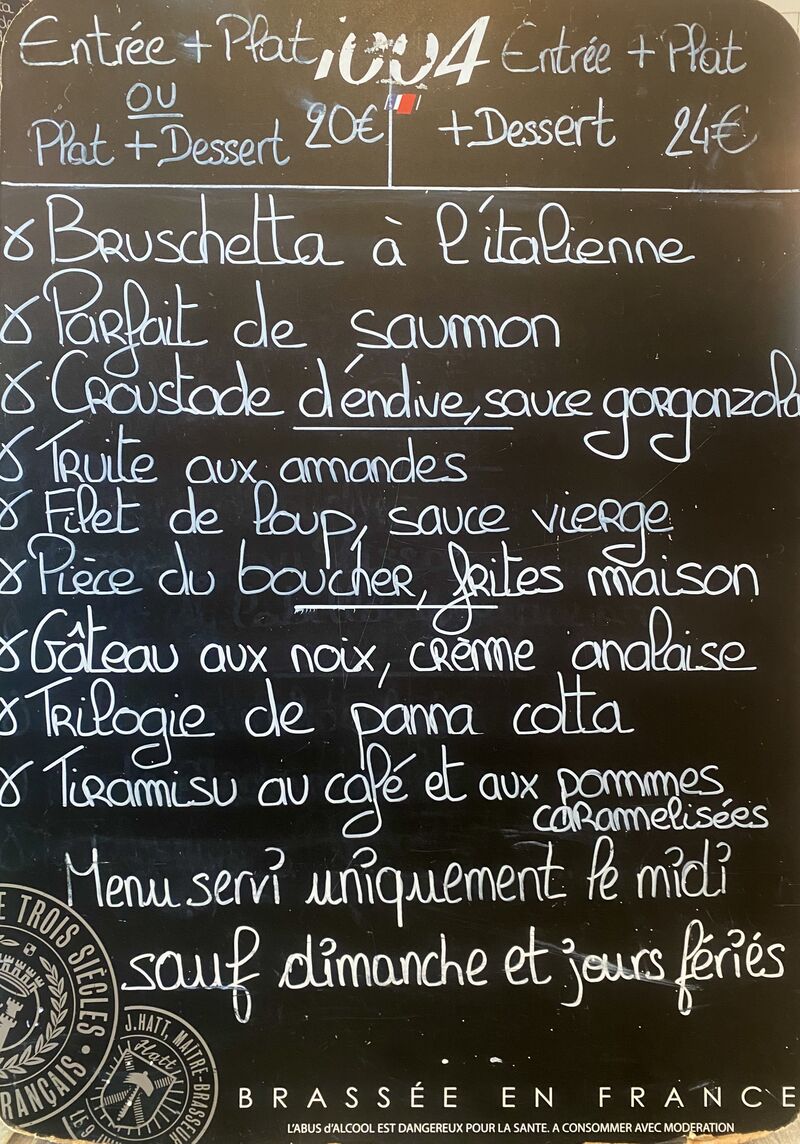 Entrée + Plat
OU
Plat + Dessert 20€
Entrée + Plat
+ Dessert 24€
Bruschetta à l'italienne
Parfait de saumon
Croustade d'éndive, sauce gorgonzola
Truite aux amandes
Filet de loup, sauce vierge
Pièce du boucher, frites maison
Gâteau aux noix, crème anglaise
Trilogie de panna cotta
Tiramisu au café et aux pommes
caramelisées
Menu servi uniquement le midi
sauf dimanche et jours fériés
E TROIS SIÈCLES
RANÇAIS
J.HATT, MAITRE-BRASSEUR
Hatt
BRASSÉE EN FRANCE
L'ABUS d'ALCOOL EST DANGEREUX POUR LA SANTE. A CONSOMMER AVEC MODERATION